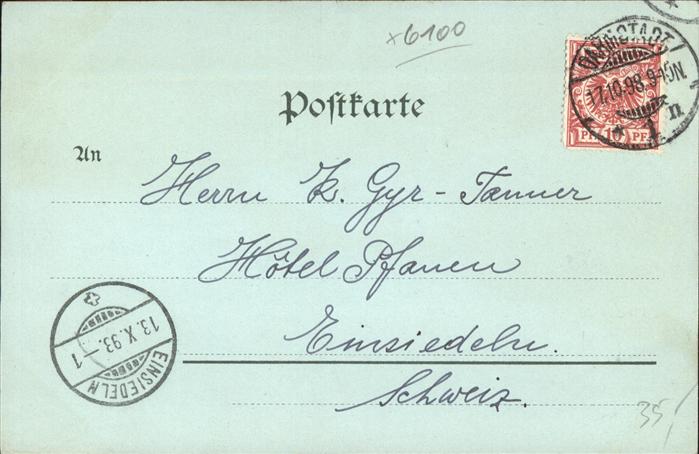 x6100
DARMSTADT
17.10.93.9-10N.
* 1 n
PF 10 PF
Postkarte
An
Herrn K. Gyr-Tanner
Hôtel Pfauen
Einsiedeln.
Schweiz.
13.X.93.-1
EINSIEDELN
35,